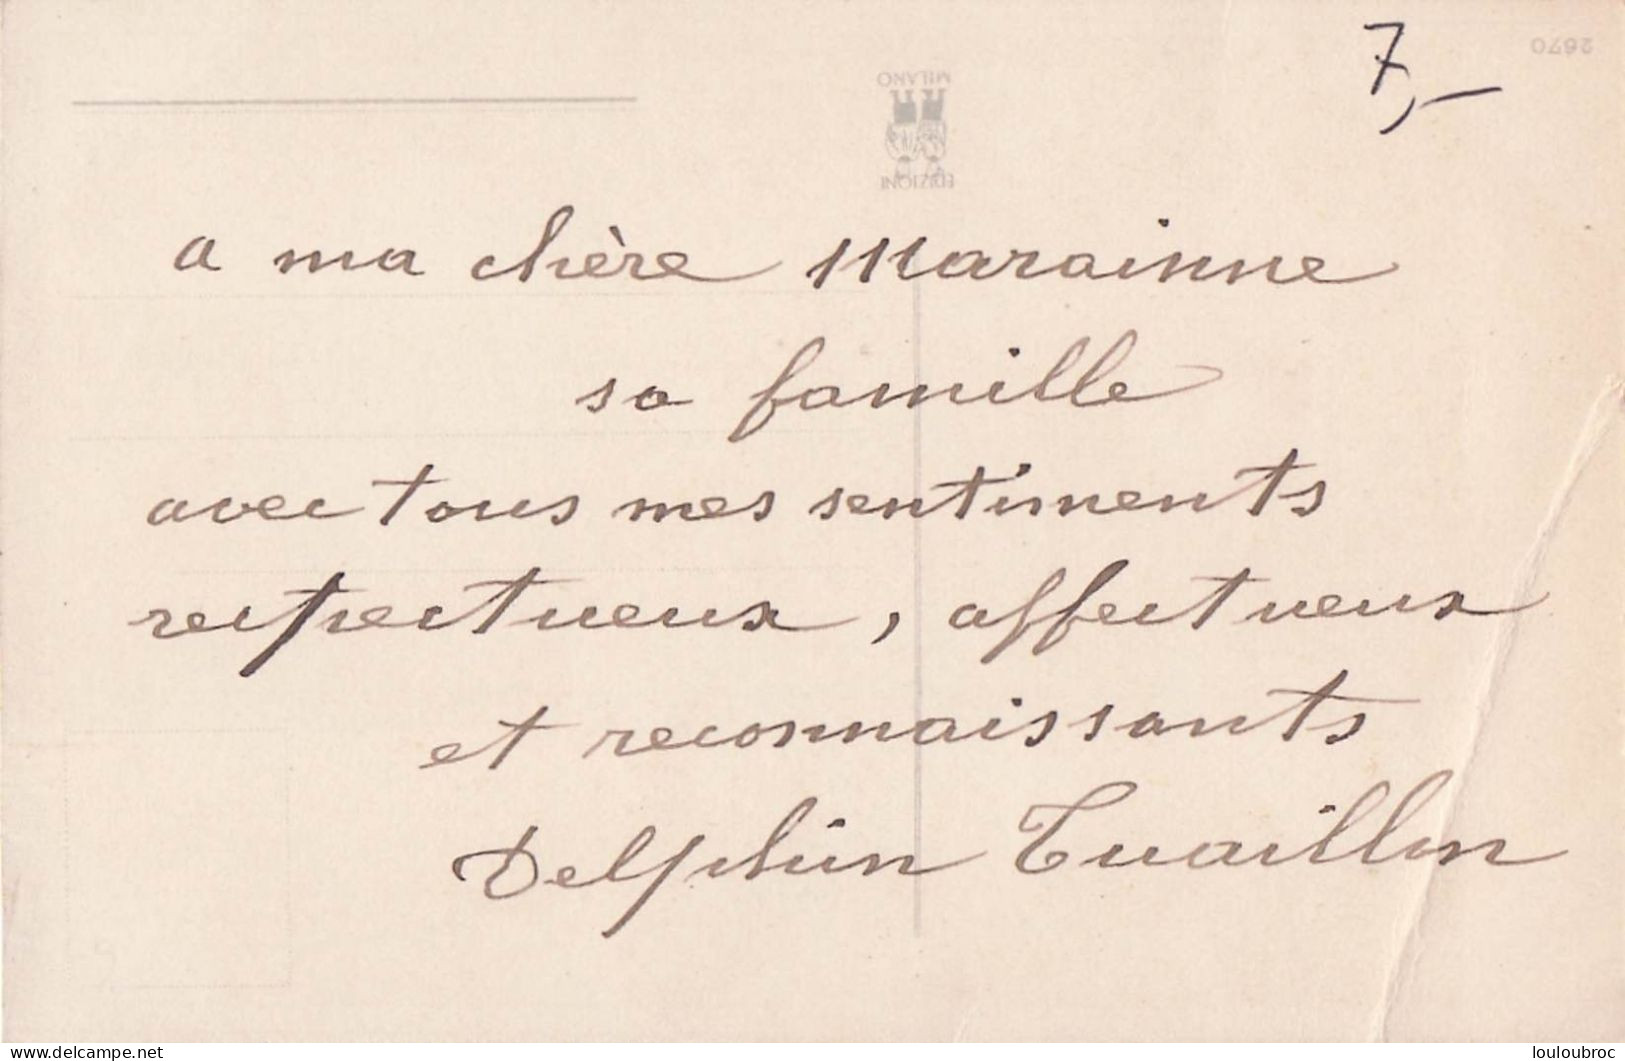 7,-
2670
EDIZIONI
MILANO
a ma chère Marainne
sa famille
avec tous mes sentiments
respectueux, affectueux
et reconnaissants
Delphin Tuaillon
delcampe.net
louloubroc